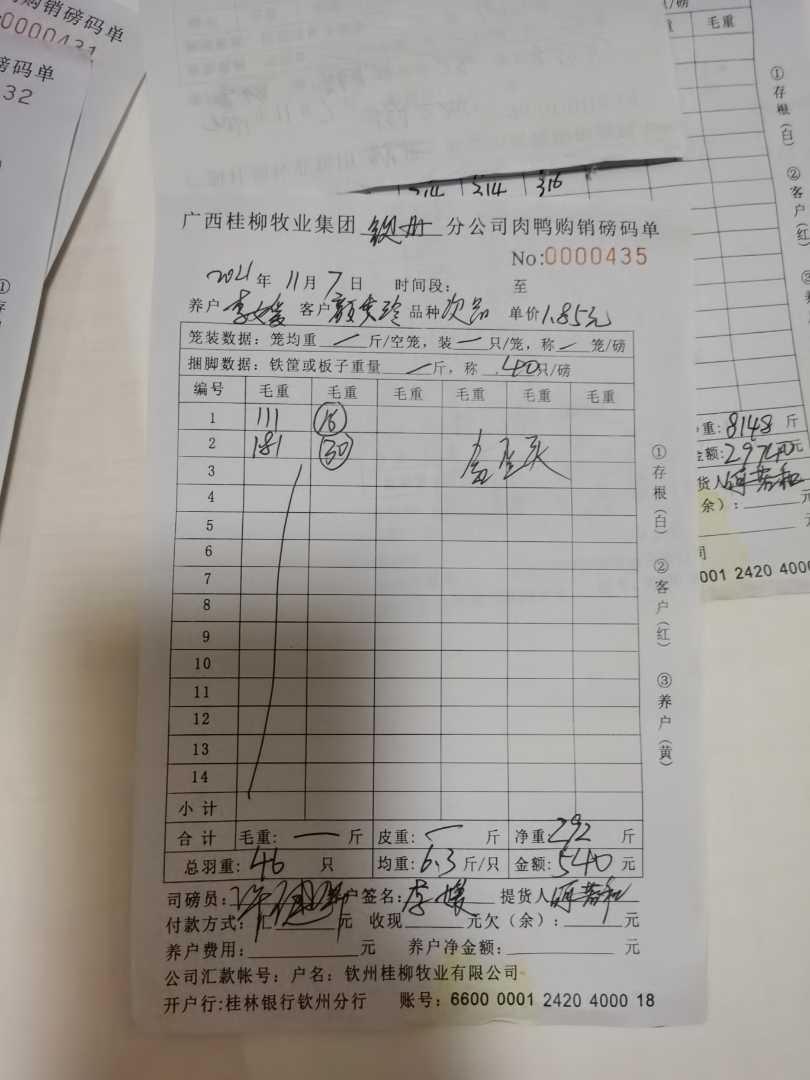 购销磅码单
0000431
磅码单
32
314 314 316
广西桂柳牧业集团 钦州 分公司肉鸭购销磅码单
No:0000435
2021年 11月 7日 时间段: 至
养户 李媛 客户 颜 珍 品种 次品 单价 1.85元
笼装数据: 笼均重 一 斤/空笼, 装 一 只/笼, 称 一 笼/磅
捆脚数据: 铁筐或板子重量 一 斤, 称 40只/磅
编号 毛重 毛重 毛重 毛重 毛重 毛重
1 111 16
2 181 30
3
4
5
6
7
8
9
10
11
12
13
14
小计
合计 毛重: 一 斤 皮重: 一 斤 净重: 292 斤
总羽重: 46 只 均重: 6.3 斤/只 金额: 540 元
司磅员: 户签名: 李媛 提货人
付款方式: 汇 元 收现 元欠(余): 元
养户费用: 元 养户净金额: 元
公司汇款帐号: 户名: 钦州桂柳牧业有限公司
开户行:桂林银行钦州分行 账号: 6600 0001 2420 4000 18
①存根(白) ②客户(红) ③养户(黄)
/磅
毛重
①存根(白) ②客户(红)
重: 8148 斤
金额: 29740元
货人
余): 元
司
001 2420 400